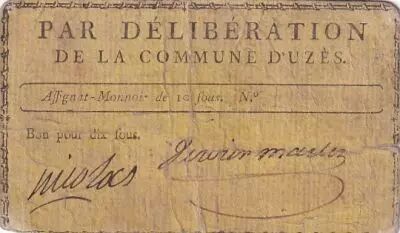 PAR DÉLIBÉRATION
DE LA COMMUNE D'UZÈS.
Aſſignat-Monnoie de 10 ſous. N.º
Bon pour dix ſous.